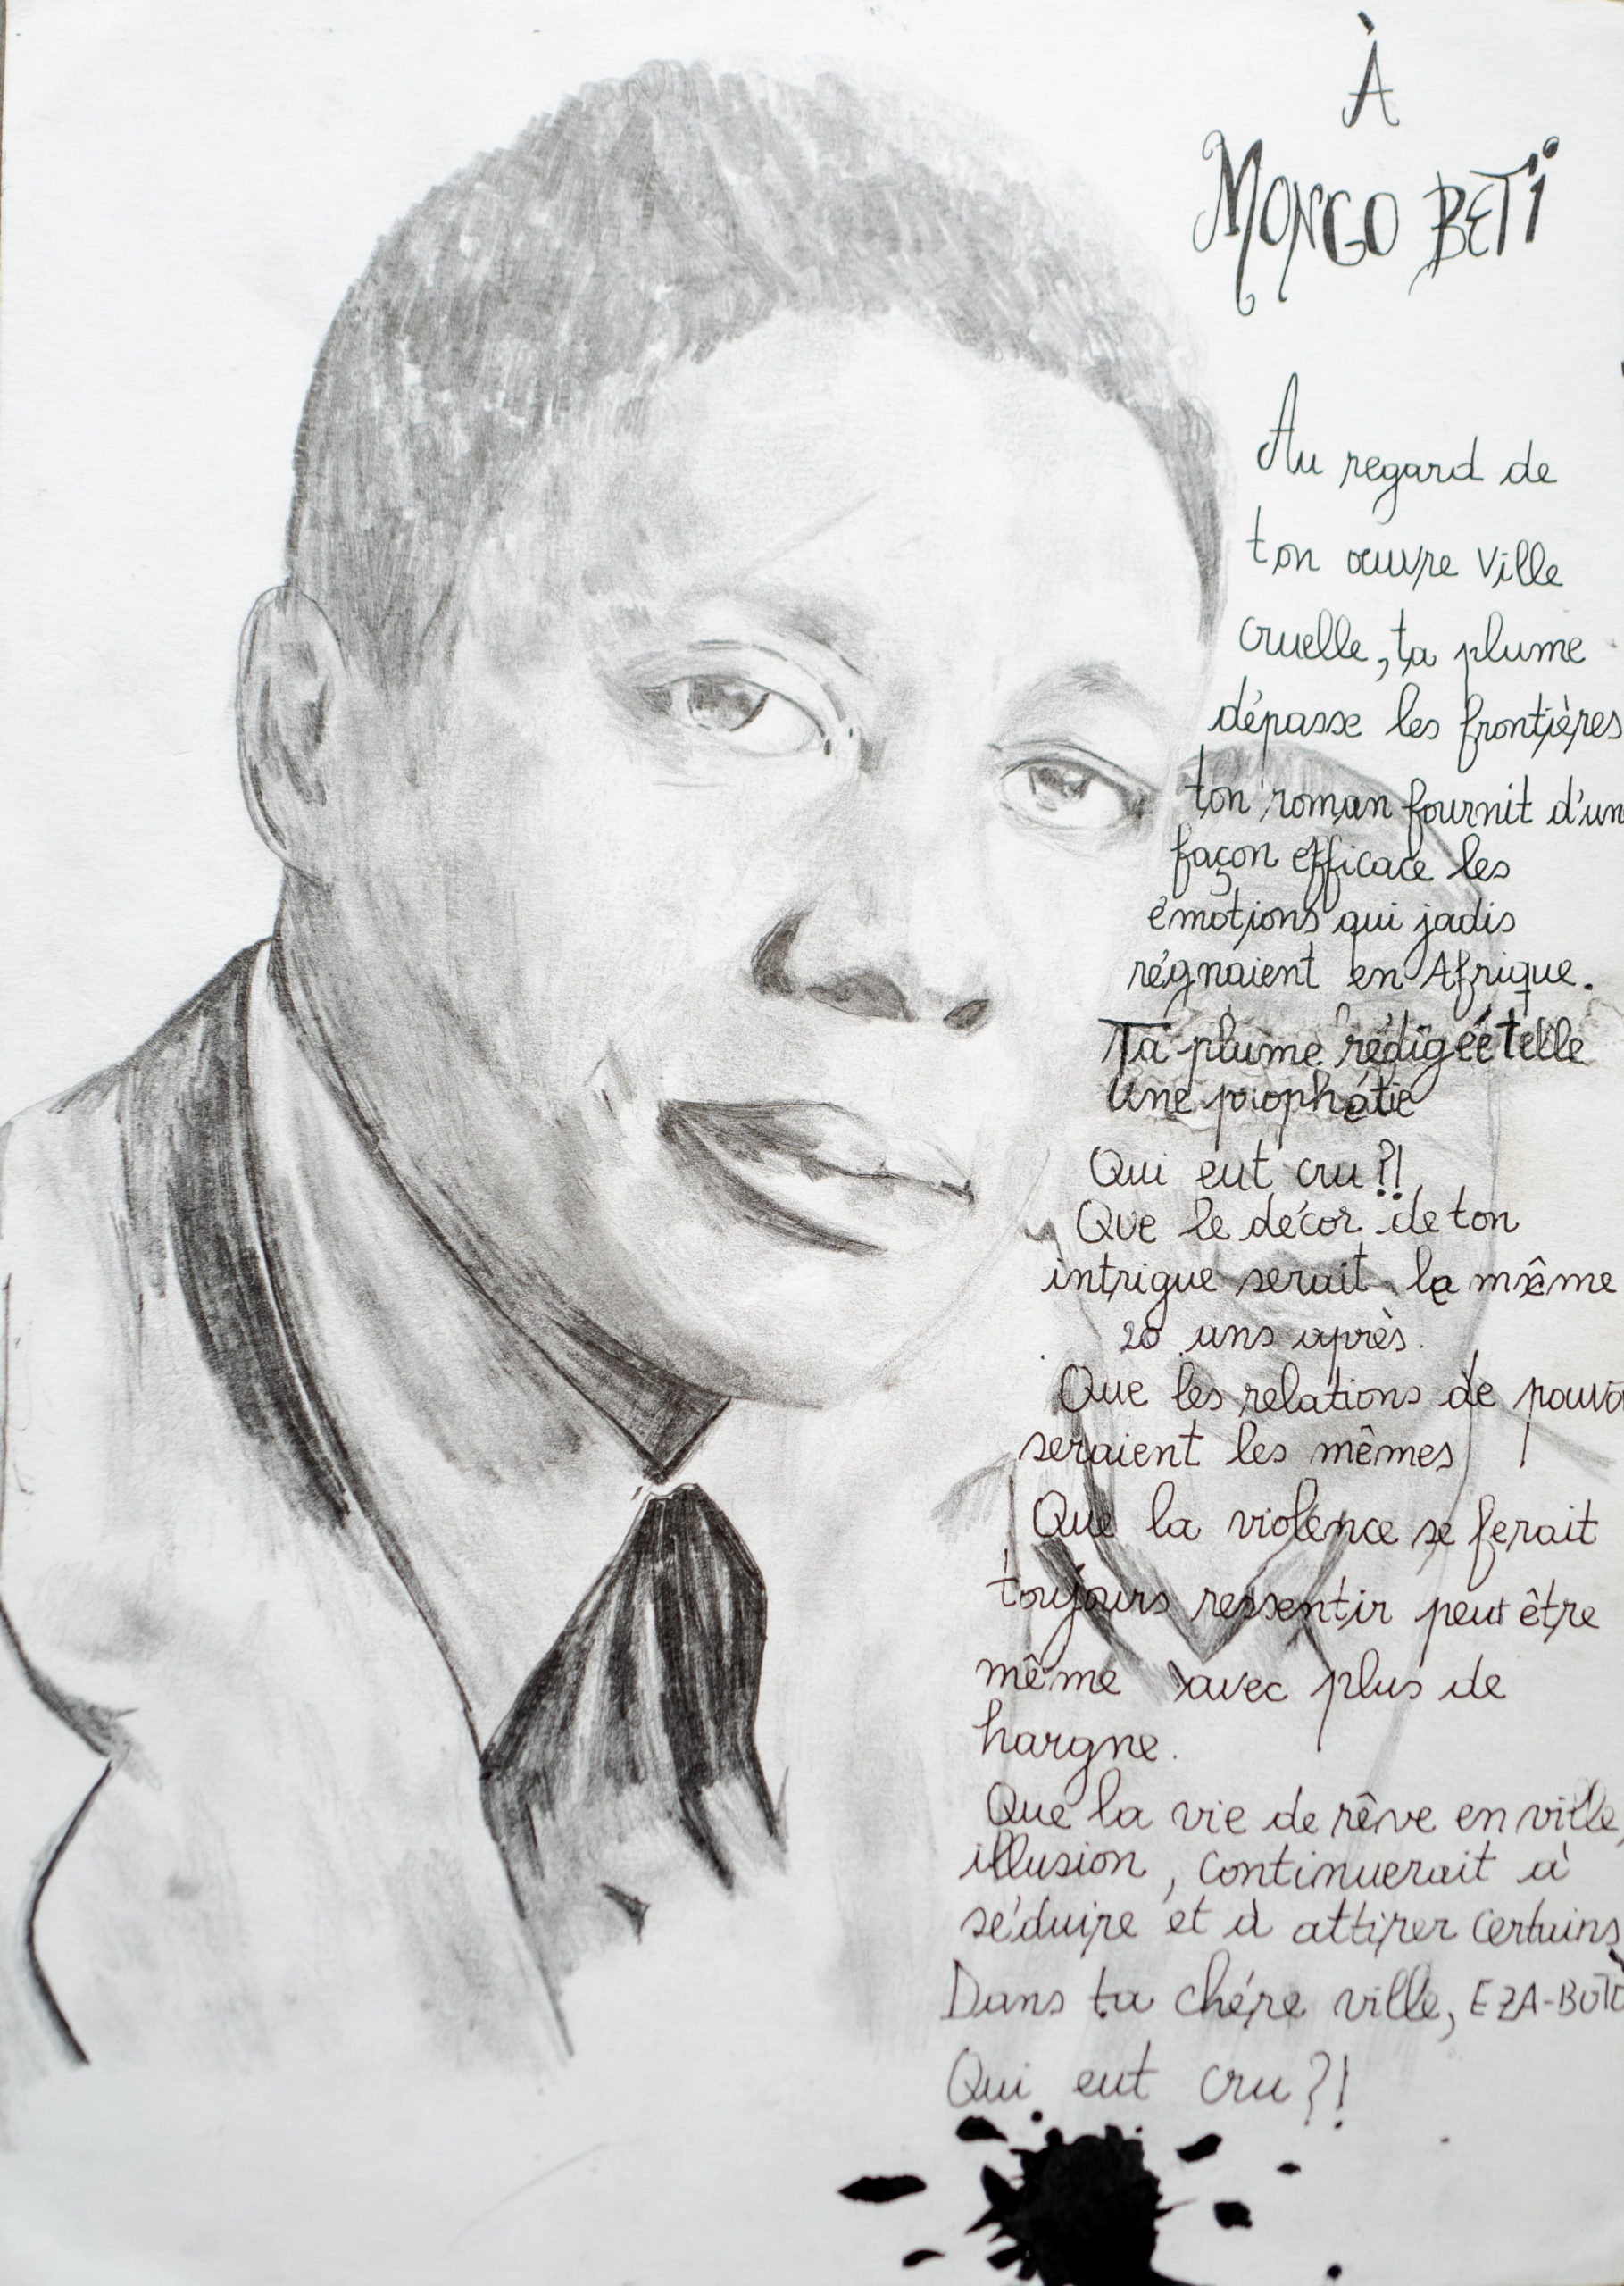 À
MONGO BETI
Au regard de
ton œuvre Ville
cruelle, ta plume
dépasse les frontières
ton roman fournit d'un
façon efficace les
émotions qui jadis
régnaient en Afrique.
Ta plume rédigée telle
Une prophétie
Qui eut cru ?!
Que le décor de ton
intrigue serait le même
20 ans après.
Que les relations de pouvo
seraient les mêmes !
Que la violence se ferait
toujours ressentir peut être
même avec plus de
hargne.
Que la vie de rêve en ville,
illusion, continuerait à
séduire et à attirer certains
Dans ta chére ville, EZA-BOTO
Qui eut cru ?!